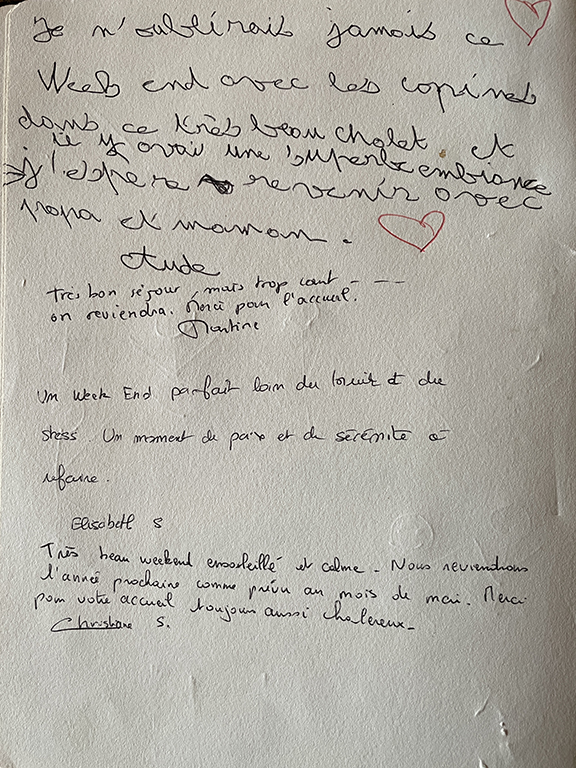 Je n'oublirais jamais ce
Week end avec les copines
dans ce très beau chalet. et
il y avait une superbe embiance
j'espère revenir avec
papa et maman.
Aude
Très bon séjour, mais trop court - - -
on reviendra. Merci pour l'accueil.
Martine
Un Week End parfait loin du bruit et du
stress. Un moment de paix et de sérénité à
refaire.
Elisabeth S
Très beau weekend ensoleillé et calme. Nous reviendrons
l'année prochaine comme prévu au mois de mai. Merci
pour votre accueil toujours aussi chalereux.
Christiane S.